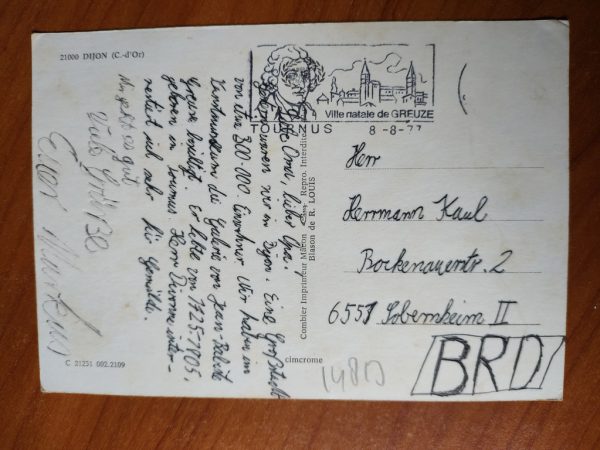 21000 DIJON (C.-d'Or)
Ville natale de GREUZE
TOURNUS 8-8-77
Liebe Oma, lieber Opa!
waren wir in Dijon. Eine Großstadt
von etwa 300.000 Einwohner. Wir haben im
Kunstmuseum die Galerie von Jean-
Greuze Er lebte von 1725-1805,
geboren in Tournus. Herr inter-
sich sehr für Gemälde.
Mir geht es gut
Viele Grüße
Euer
Combier Imprimeur Mâcon Repro. Interdite
Blason de R. LOUIS
cimcrome
C 21231 002.2109
Herr
Herrmann Kaul
Bockenauerstr. 2
6553 Sobernheim II
BRD